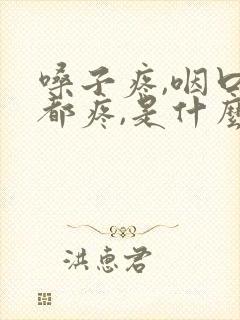 嗓子疼,咽口
都疼,是什麼
洪惠君